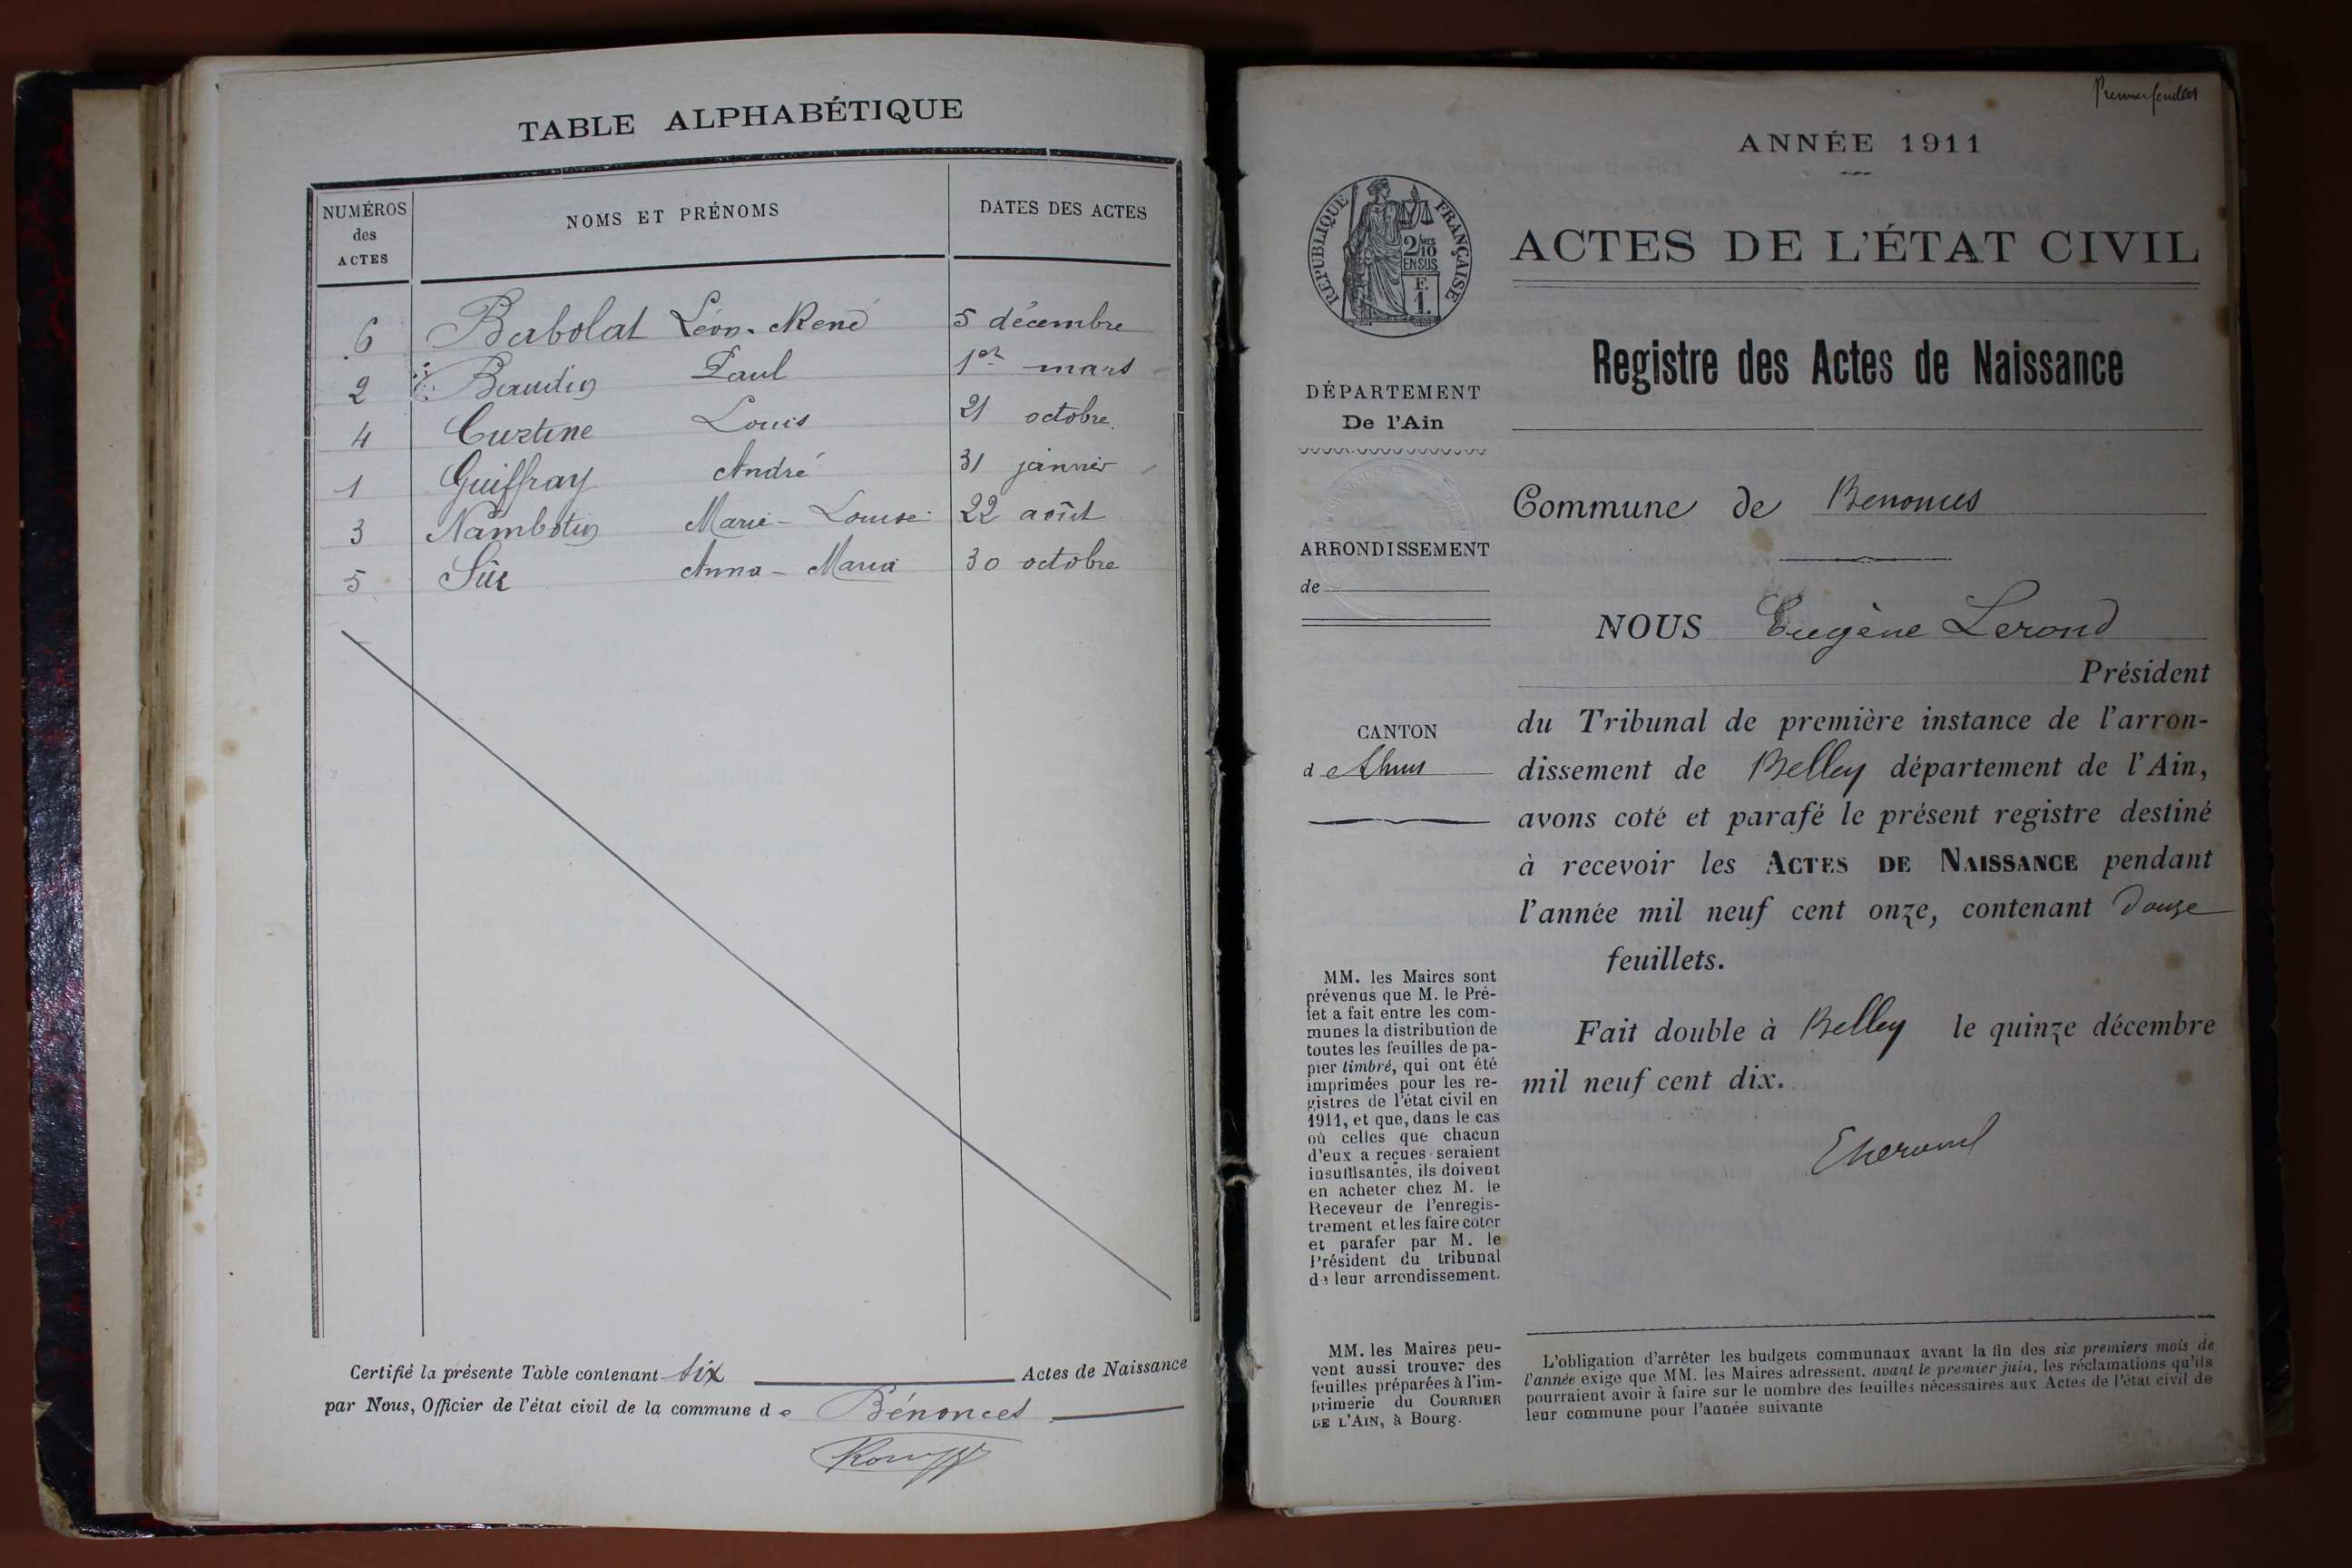 TABLE ALPHABÉTIQUE
NUMÉROS des ACTES
NOMS ET PRÉNOMS
DATES DES ACTES
6 Berbolat Léon-René 5 décembre
2 Baudin Paul 1er mars
4 Custine Louis 21 octobre
1 Guiffray André 31 janvier
3 Nambotin Marie-Louise 22 août
5 Sûc Anna-Maria 30 octobre
Certifié la présente Table contenant six Actes de Naissance
par Nous, Officier de l'état civil de la commune de Bénonces
Premier feuillet
ANNÉE 1911
RÉPUBLIQUE FRANÇAISE
2/10 MES
EN SUS
F.
1.
ACTES DE L'ÉTAT CIVIL
Registre des Actes de Naissance
DÉPARTEMENT
De l'Ain
Commune de Benonces
ARRONDISSEMENT
de
NOUS Eugène Lerond
Président
CANTON
d
du Tribunal de première instance de l'arron-
dissement de Belley département de l'Ain,
avons coté et parafé le présent registre destiné
à recevoir les ACTES DE NAISSANCE pendant
l'année mil neuf cent onze, contenant douze
feuillets.
Fait double à Belley le quinze décembre
mil neuf cent dix.
MM. les Maires sont
prévenus que M. le Pré-
fet a fait entre les com-
munes la distribution de
toutes les feuilles de pa-
pier timbré, qui ont été
imprimées pour les re-
gistres de l'état civil en
1911, et que, dans le cas
où celles que chacun
d'eux a reçues seraient
insuffisantes, ils doivent
en acheter chez M. le
Receveur de l'enregis-
trement et les faire coter
et parafer par M. le
Président du tribunal
de leur arrondissement.
MM. les Maires peu-
vent aussi trouver des
feuilles préparées à l'im-
primerie du COURRIER
DE L'AIN, à Bourg.
L'obligation d'arrêter les budgets communaux avant la fin des six premiers mois de
l'année exige que MM. les Maires adressent, avant le premier juin, les réclamations qu'ils
pourraient avoir à faire sur le nombre des feuilles nécessaires aux Actes de l'état civil de
leur commune pour l'année suivante